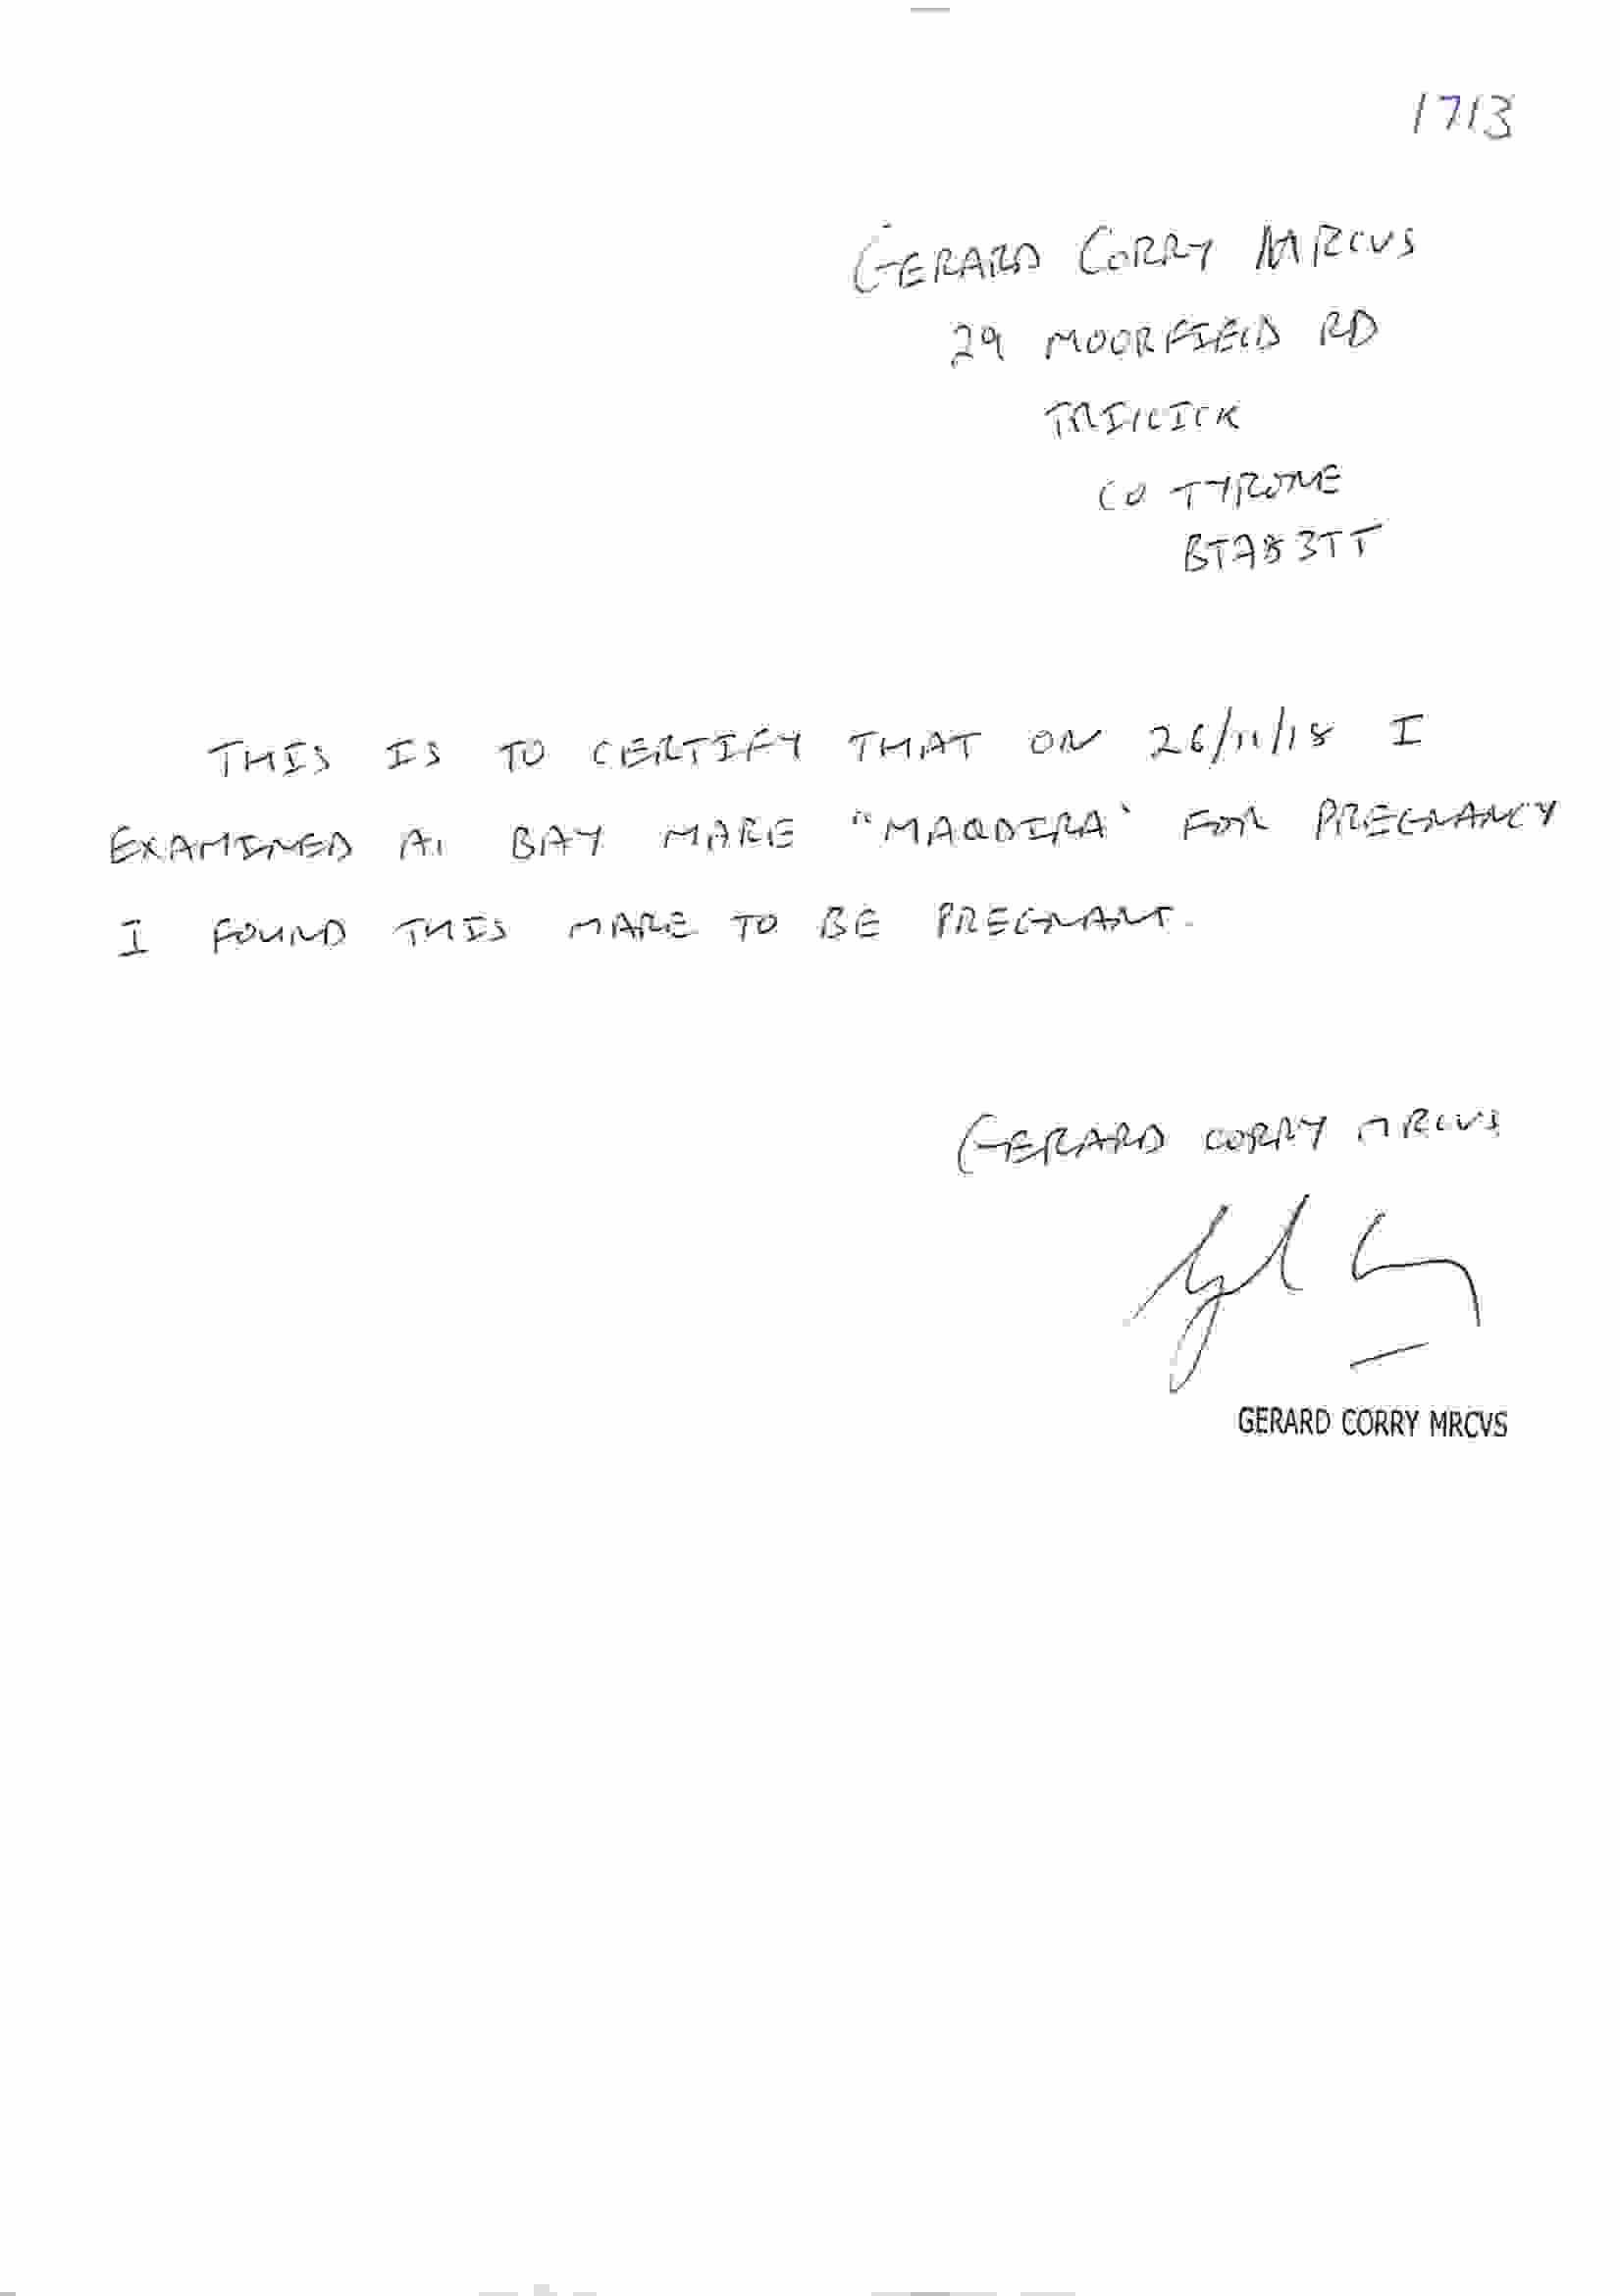 1713
GERARD CORRY MRCVS
29 MOORFIELD RD
TRILLICK
CO TYRONE
BT78 3TT
THIS IS TO CERTIFY THAT ON 26/11/18 I
EXAMINED A BAY MARE "MAQDIRA" FOR PREGNANCY
I FOUND THIS MARE TO BE PREGNANT.
GERARD CORRY MRCVS
GERARD CORRY MRCVS